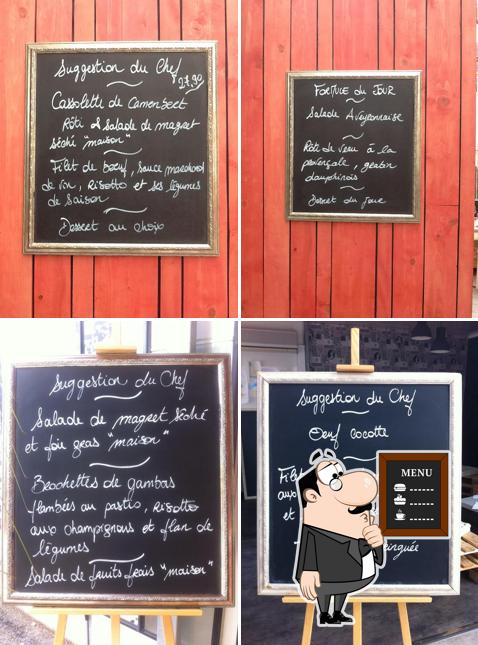 Suggestion du Chef
27,90
Cassolette de Camembert
Rôti et Salade de magret
séché "maison"
Filet de bœuf, sauce marchand
de vin, Risotto et ses légumes
de Saison
Dessert au choix
FORMULE du JOUR
Salade Aveyronnaise
Rôti de veau à la
provençale, gratin
dauphinois
Dessert du jour
Suggestion du Chef
Salade de magret séché
et foie gras "maison"
Brochettes de gambas
flambées au pastis, Risotto
aux champignons et flan de
légumes
Salade de fruits frais "maison"
Suggestion du Chef
Oeuf cocotte
Filet
aux
et
MENU